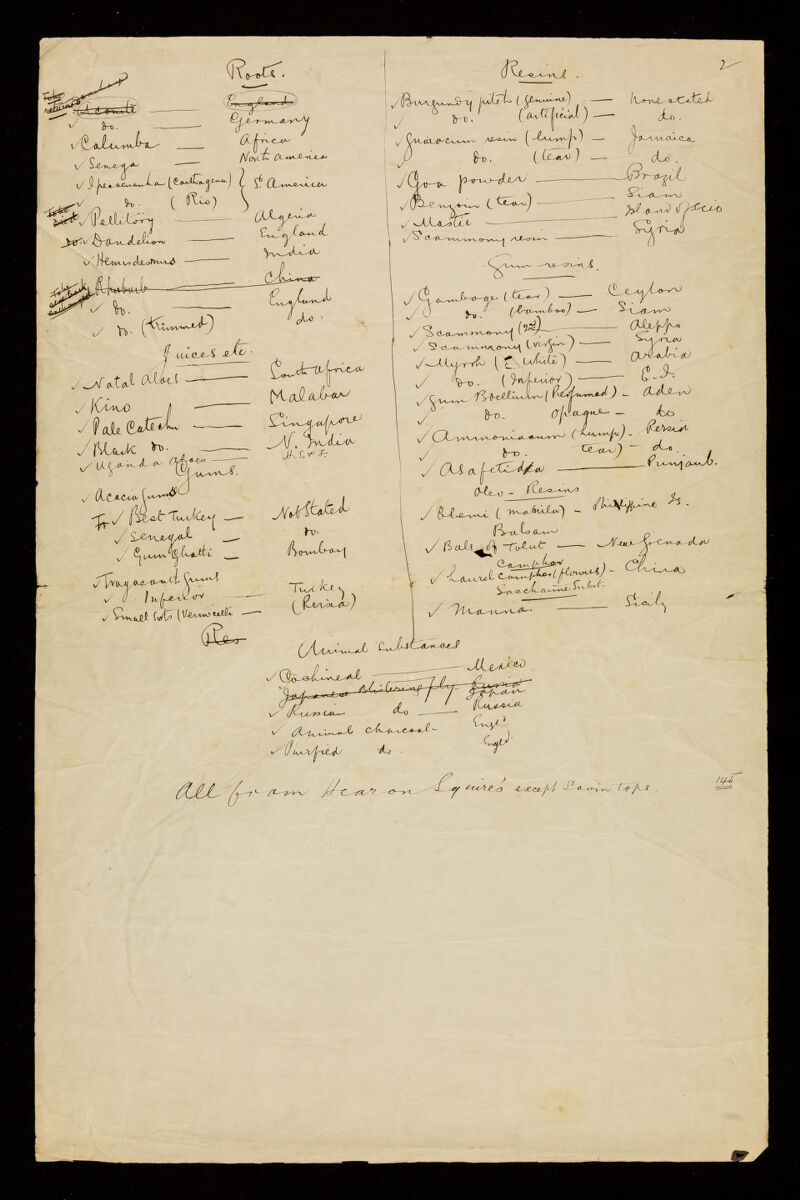 2
Roots.
To be returned
Aconite — England
✓ do. — Germany
✓ Calumba — Africa
✓ Senega — North America
✓ Ipecacuanha (Carthagena) } So. America
✓ do. (Rio)
✓ Pellitory — Algeria
do. ✓ Dandelion — England
✓ Hemidesmus — India
Rhubarb — China
✓ do. — England
✓ do. (trimmed) do.
Juices etc.
✓ Natal Aloes — South Africa
✓ Kino — Malabar
✓ Pale Catechu — Singapore
✓ Black do. — N. India
✓ Uganda Aloes — H. S. & S.
Gums.
✓ Acacia Gums
✓ Best Turkey — Not Stated
✓ Senegal — do.
✓ Gum Ghatti — Bombay
✓ Tragacanth Gums
✓ Inferior — Turkey
✓ Small Sorts (Vermicelli — (Persia)
Res
Resins.
✓ Burgundy pitch (genuine) — None stated
✓ do. (artificial) — do.
✓ Guaiacum resin (lump) — Jamaica
✓ do. (tear) — do.
✓ Goa powder — Brazil
✓ Benzoin (tear) — Siam
✓ Mastic — Island of Scio
✓ Scammony resin — Syria
Gum resins.
✓ Gamboge (tear) — Ceylon
✓ do. (bamboo) — Siam
✓ Scammony (2nd) — Aleppo
✓ Scammony (virgin) — Syria
✓ Myrrh (White) — Arabia
✓ do. (Inferior) — E.I.
✓ Gum Bdellium (Perfumed) — Aden
✓ do. opaque — do
✓ Ammoniacum (lump) — Persia
✓ do. tear) — do.
✓ Asafetida — Punjaub.
Oleo-Resins
✓ Elemi (Manila) — Philippine Is.
Balsam
✓ Bals of Tolut — New Grenada
Camphor
✓ Laurel Camphor (flowers) — China
Saccharine Subst.
✓ Manna. — Sicily
Animal Substances
✓ Cochineal — Mexico
Japanese Blistering fly Japan
✓ Russian do — Russia
✓ Animal charcoal — Engld
✓ Purified do. Engld.
All from Hearon Squire's except Savin tops. 145